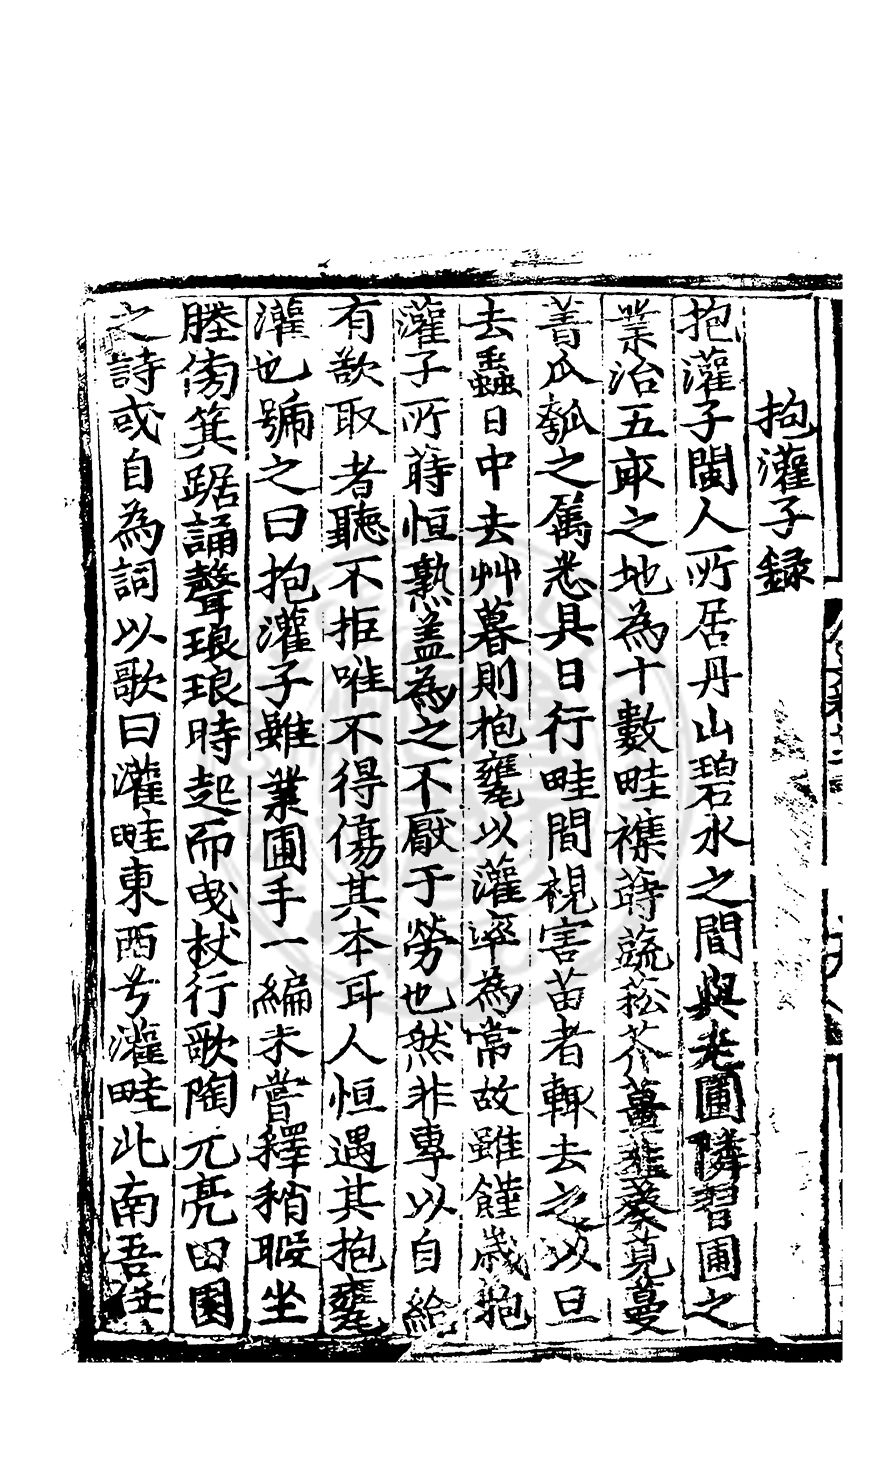 抱灌子録
抱灌子閩人所居丹山碧水之間與老圃隣習圃之
業治五畝之地為十數畦襍蒔蔬菘芥薑韭蓼莧蔓
菁瓜瓠之屬悉具日行畦間視害苗者輒去之以旦
去蟲日中去艸暮則抱甕以灌率為常故雖饉歲抱
灌子所蒔恒熟蓋為之不厭于勞也然非專以自給
有欲取者聽不拒唯不得傷其本耳人恒遇其抱甕
灌也號之曰抱灌子雖業圃手一編未嘗釋稍暇坐
塍傍箕踞誦聲琅琅時起而曳杖行歌陶元亮田園
之詩或自為詞以歌曰灌畦東西兮灌畦北南吾